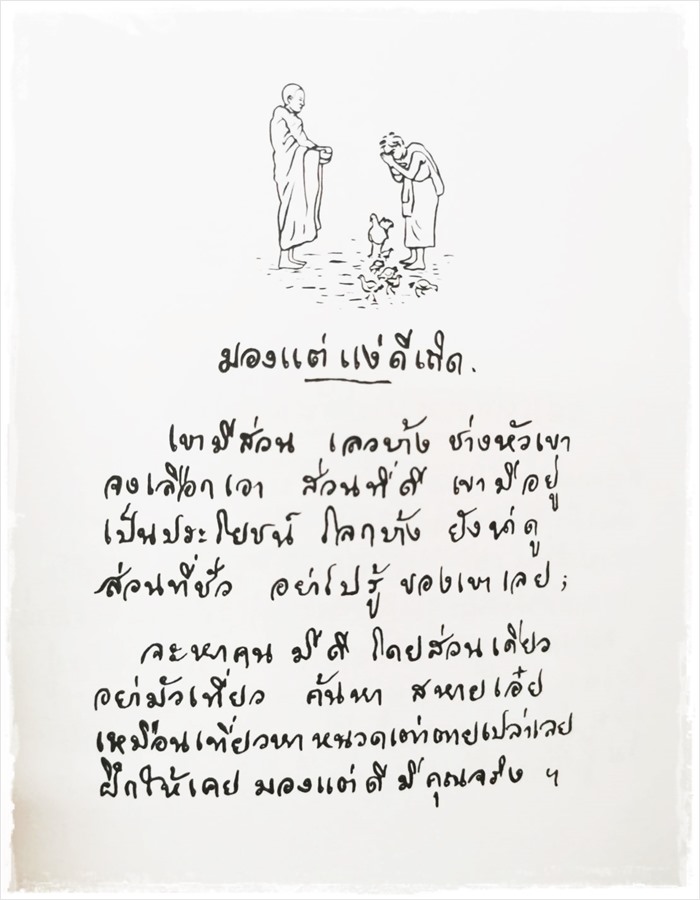 มองแต่แง่ดีเถิด.
เขามีส่วน เลวบ้าง ช่างหัวเขา
จงเลือกเอา ส่วนที่ดี เขามีอยู่
เป็นประโยชน์ โลกบ้าง ยังน่าดู
ส่วนที่ชั่ว อย่าไปรู้ ของเขาเลย ;
จะหาคน มีดี โดยส่วนเดียว
อย่ามัวเที่ยว ค้นหา สหายเอ๋ย
เหมือนเที่ยวหา หนวดเต่าตายเปล่าเลย
ฝึกให้เคย มองแต่ดี มีคุณจริง ฯ